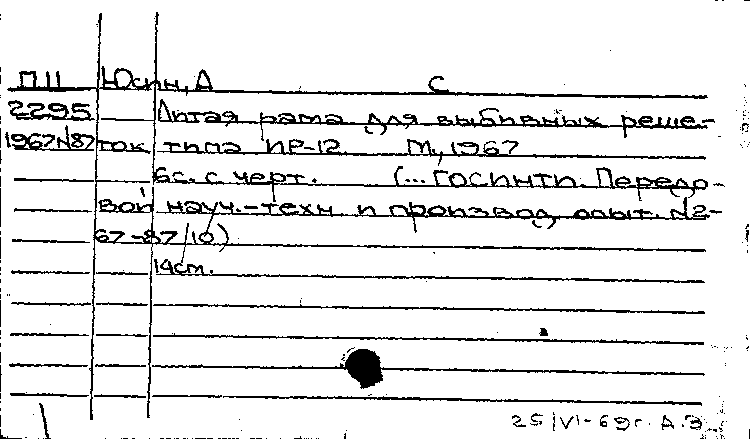 П11 Юсин, А С
2295 Литая рама для выбивных реше-
1967 №87 ток типа ИР-12. М., 1967
6с. с черт. (...ГОСИНТИ. Передо-
вой науч.-техн. и производ. опыт. №2-
67-87/10)
14см.
25/VI-69г. А.Э.